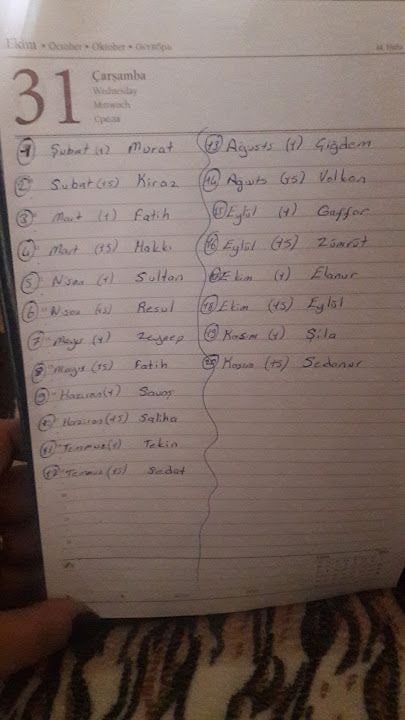 Ekim • October • Oktober • Октябрь
44. Hafta
31
Çarşamba
Wednesday
Mittwoch
Среда
1 Şubat (1) Murat
2" Şubat (15) Kiraz
3" Mart (1) Fatih
4" Mart (15) Hakkı
5" Nisan (1) Sultan
6" Nisan (15) Resul
7" Mayıs (1) Zeynep
8" Mayıs (15) Fatih
9" Haziran (1) Savaş
10" Haziran (15) Saliha
11" Temmuz (1) Tekin
12" Temmuz (15) Sedat
13 Ağusts (1) Çiğdem
14 Ağusts (15) Volkan
15 Eylül (1) Gaffar
16 Eylül (15) Zümrüt
17 Ekim (1) Elanur
18 Ekim (15) Eylül
19 Kasım (1) Şila
20 Kasım (15) Sedanur